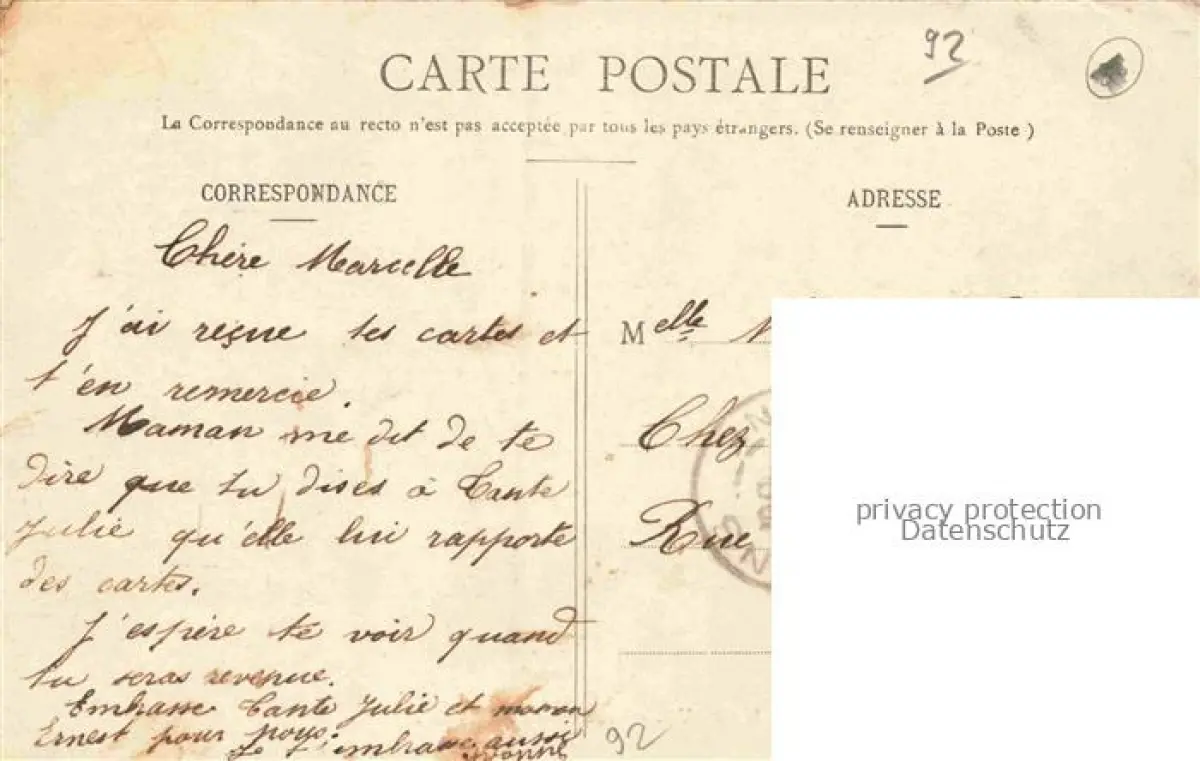 92
CARTE POSTALE
La Correspondance au recto n'est pas acceptée par tous les pays étrangers. (Se renseigner à la Poste )
CORRESPONDANCE
Chère Marcelle
J'ai reçue tes cartes et
t'en remercie.
Maman me dit de te
dire que tu dises à Tante
Julie qu'elle lui rapporte
des cartes.
J'espère te voir quand
tu seras revenue.
Embrasse Tante Julie et
Ernest pour nous.
Je t'embrasse aussi
Yvonne
92
ADRESSE
Melle
Chez
Rue
privacy protection
Datenschutz